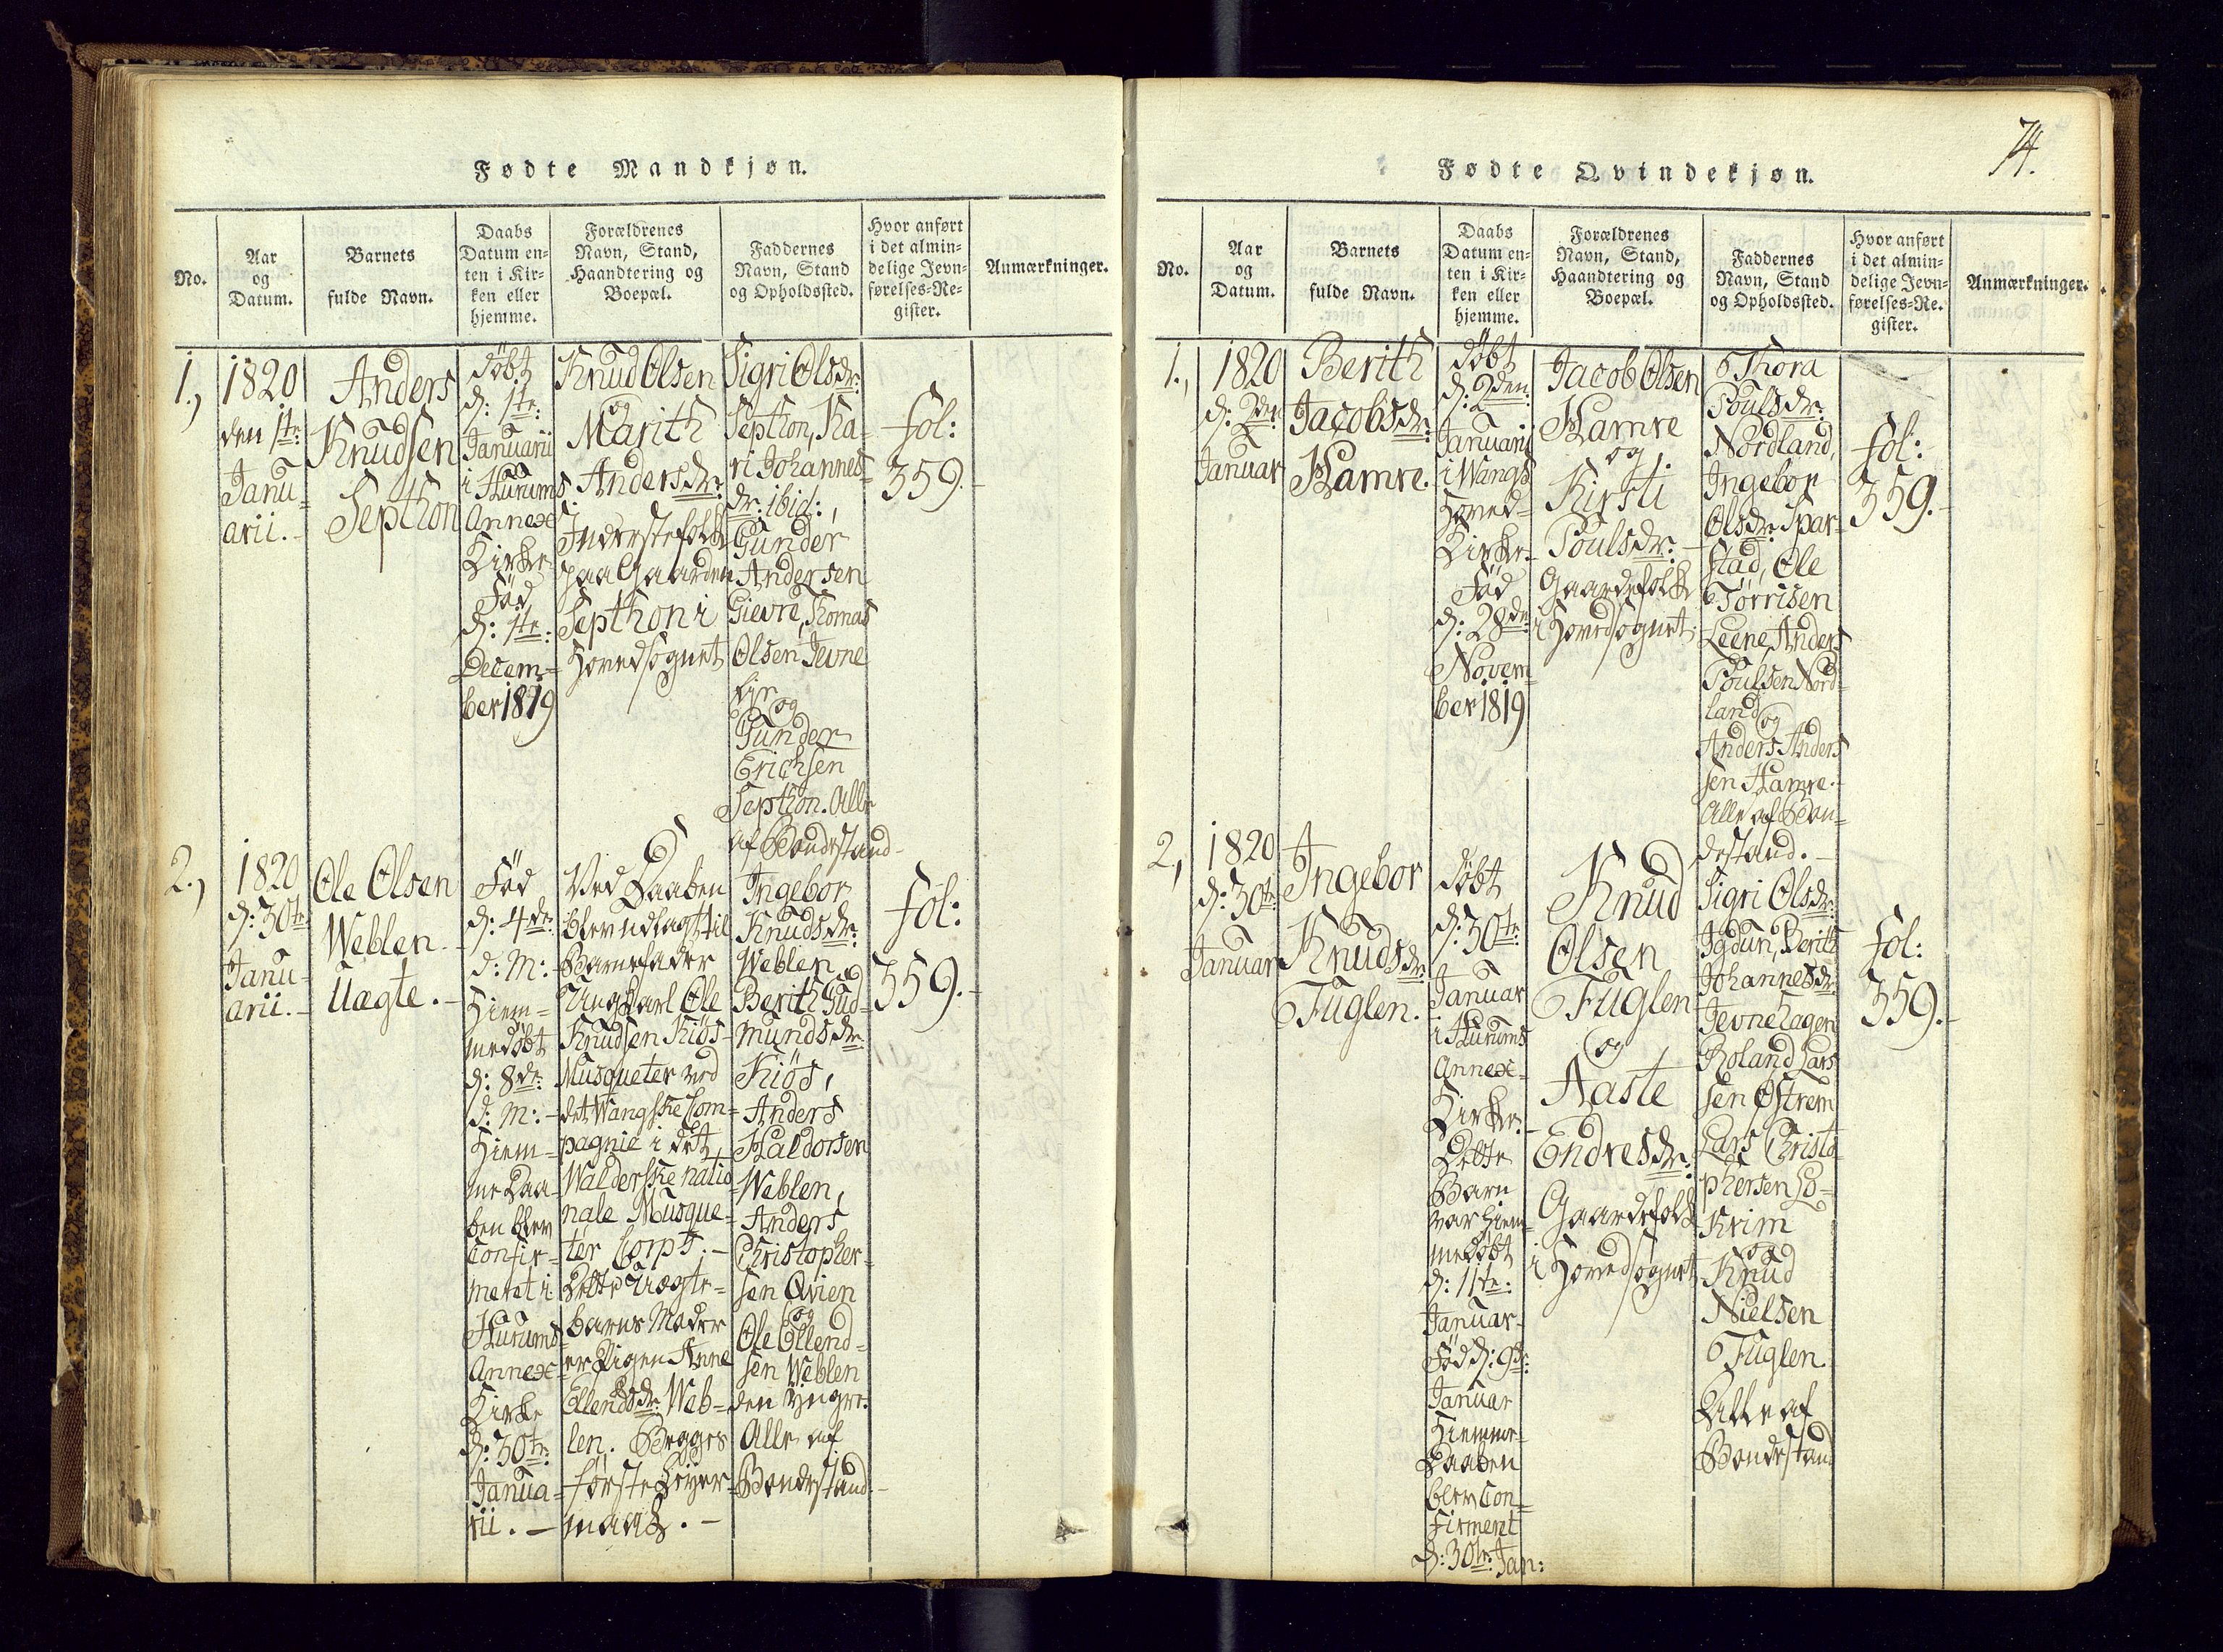 Fødte Mandkjøn.
No.
Aar
og
Datum.
Barnets
fulde Navn.
Daabs
Datum en-
ten i Kir-
ken eller
hjemme.
Forældrenes
Navn, Stand,
Haandtering og
Boepæl.
Faddernes
Navn, Stand
og Opholdssted.
Hvor anført
i det almin-
delige Jevn-
førelses-Re-
gister.
Anmærkninger.
1.,
1820
den 1te:
Janu-
arii.-
Anders
Knudsen
Septhon
døbt
d: 1te:
Januarii
i Hurums
Annex
Kirke
Fød
d: 1te:
Decem-
ber 1819
Knud Olsen
og
Marith
Andersdr:
Inderstefolk
paa Gaarden
Septhon i
Hovedsognet
Sigri Olsdr:
Septhon, Ka-
ri Johannes-
dr: ibid:,
Gunder
Andersen
Gievre, Thomas
Olsen Jevne
og
Gunder
Erichsen
Septhon. Alle
af Bondestand-
fol:
359.-
2.,
1820
d: 30te
Janu-
arii.-
Ole Olsen
Weblen.
Uægte.-
Fød
d: 4de:
d: M:-
Hiem-
medøbt
d: 8de:
d: M:-
Hiem-
me Daa-
ben blev
Confir-
meret i
Hurums
Annex-
Kirke
d: 30te:
Janua-
rii.-
Ved Daaben
blev udlagt til
Barnefader
Ungkarl Ole
Knudsen Kiøs-
Musqueter ved
det Wangske Com-
pagnie i det
Walderske natio-
nale Musque-
ter Corps.-
Dette Uægte-
barns Moder
er Pigen Anne
Ellendsdr: Web-
len. Begges
første Leyer-
maal.-
Ingebor
Knudsdr:
Weblen,
Berith Gud-
mundsdr:
Kiøs,
Anders
Haldorsen
Weblen,
Anders
Christopher-
sen Qvien
og
Ole Ellend-
sen Weblen
den yngre.
Alle af
Bondestand.-
fol:
359.-
74.
Fødte Qvindekjøn.
No.
Aar
og
Datum.
Barnets
fulde Navn.
Daabs
Datum en-
ten i Kir-
ken eller
hjemme.
Forældrenes
Navn, Stand,
Haandtering og
Boepæl.
Faddernes
Navn, Stand
og Opholdssted.
Hvor anført
i det almin-
delige Jevn-
førelses-Re-
gister.
Anmærkninger.
1.,
1820
d: 2den
Januar
Berith
Jacobsdr:
Hamre.
døbt
d: 2den:
Januarii
i Wangs
Hoved-
Kirke.-
Fød
d: 28de
Novem-
ber 1819
Jacob Olsen
Hamre
og
Kirsti
Poulsdr:-
Gaardefolk
i Hovedsognet
Thora
Poulsdr:
Nordland,
Ingebor
Olsdr: Spar-
stad, Ole
Tørrisen
Leene, Anders
Poulsen Nord-
land
og
Anders Anders
sen Hamre.-
Alle af Bon-
destand.-
fol:
359.-
2.,
1820
d: 30te:
Januar
Ingebor
Knudsdr:
Fuglen.
døbt
d: 30te:
Januar
i Hurums
Annex-
Kirke.-
Dette
Barn
var hiem-
medøbt
d: 11te:
Januar-
Fød d: 9de:
Januar
Hiemme-
Daaben
blev Con-
firmert
d: 30te: Jan:
Knud
Olsen
Fuglen
og
Aaste
Endresdr:
Gaardefolk
i Hovedsognet
Sigri Olsdr:
Igdun, Berith
Johannesdr:
Jevnehagen
Roland Lars
sen Østrem
Lars Christo-
phersen Lo-
Krim
og
Knud
Nielsen
Fuglen
Alle af
Bondestand
fol:
359.-